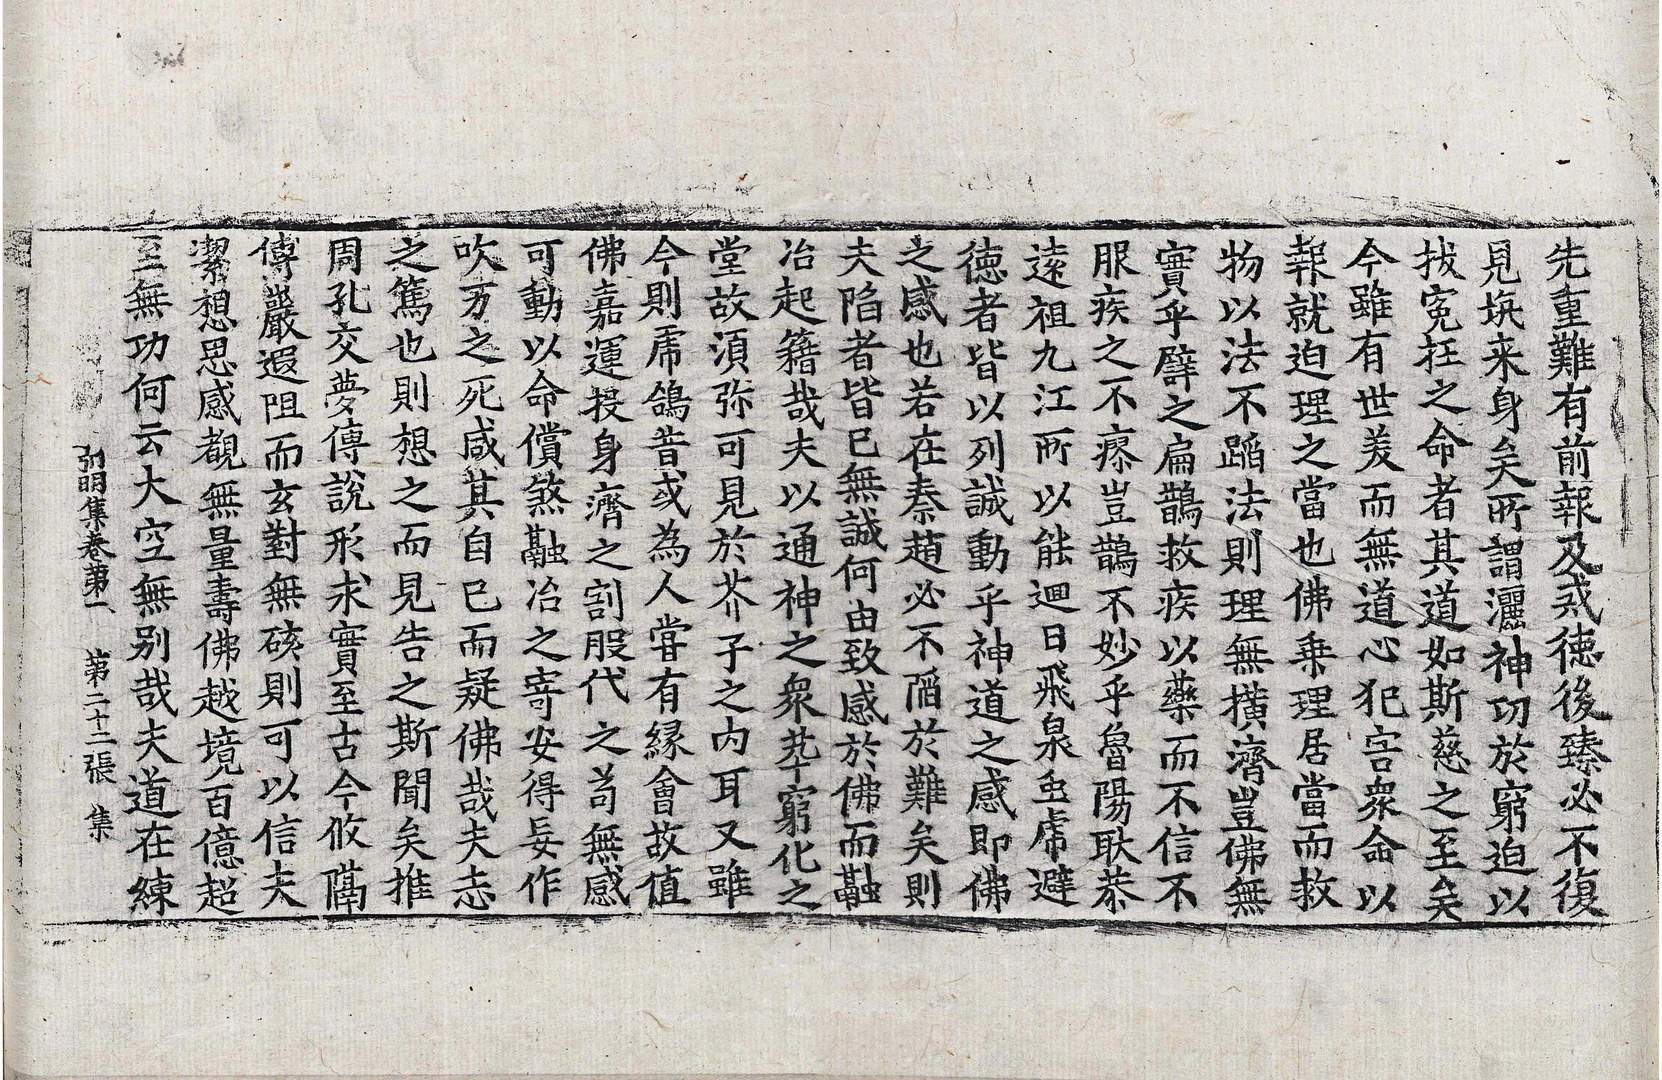 先重難有前報及戒徳後臻必不復
見埉来身矣所謂灑神功於窮迫以
拔寃抂之命者其道如斯慈之至矣
今雖有世羙而無道心犯害衆命以
報就迫理之當也佛乗理居當而救
物以法不蹈法則理無横濟豈佛無
實乎譬之扁鵲救疾以藥而不信不
服疾之不瘳豈鵲不妙乎魯陽耿恭
逺祖九江所以能迴日飛泉䖝虎避
徳者皆以列誠動乎神道之感即佛
之感也若在秦趙必不䧟於難矣則
夫陷者皆已無誠何由致感於佛而融
冶起籍哉夫以通神之衆萃窮化之
堂故湏弥可見於芥子之内耳又雖
今則虎鴿昔或為人嘗有縁會故值
佛嘉運投身濟之割股代之苟無感
可動以命償煞融冶之寄安得妄作
吹万之死咸其自已而疑佛哉夫志
之篤也則想之而見告之斯聞矣推
周孔交夢傅說形求實至古今攸隔
傳巖遐阻而玄對無硋則可以信夫
潔想思感覩無量壽佛越境百億超
至無功何云大空無别哉夫道在練
弘明集卷苐一 第二十二張 集